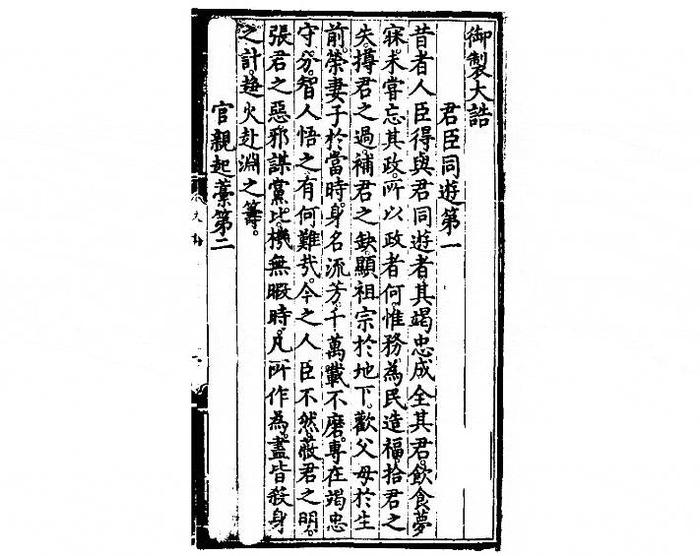 御製大誥
君臣同遊第一
昔者人臣得與君同遊者。其竭忠成全其君。飲食夢
寐。未嘗忘其政。所以政者何。惟務為民造福。拾君之
失。撙君之過。補君之缺。顯祖宗於地下。歡父母於生
前。榮妻子於當時。身名流芳。千萬載不磨。專在竭忠
守分。智人悟之有何難哉。今之人臣不然。蔽君之明。
張君之惡。邪謀黨比。機無暇時。凡所作為。盡皆殺身
之計。趍火赴淵之籌。
官親起藁第二